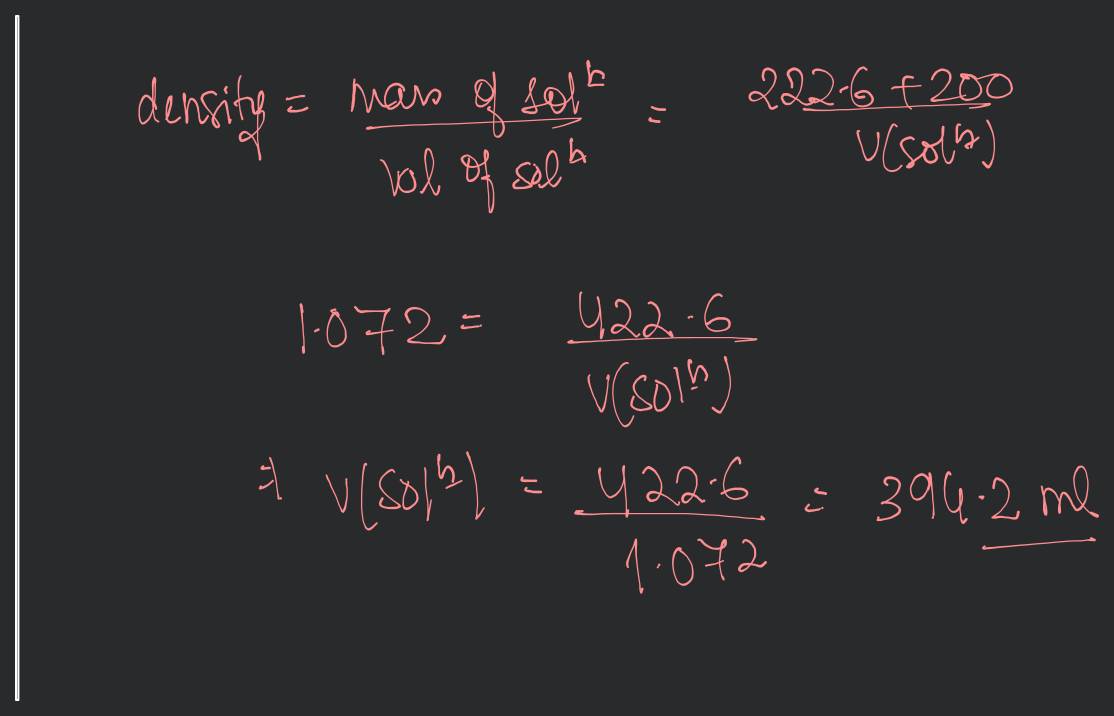 density = mass of solⁿ / vol of solⁿ = 222.6 + 200 / V(solⁿ)
1.072 = 422.6 / V(solⁿ)
⇒ V(solⁿ) = 422.6 / 1.072 = 394.2 ml